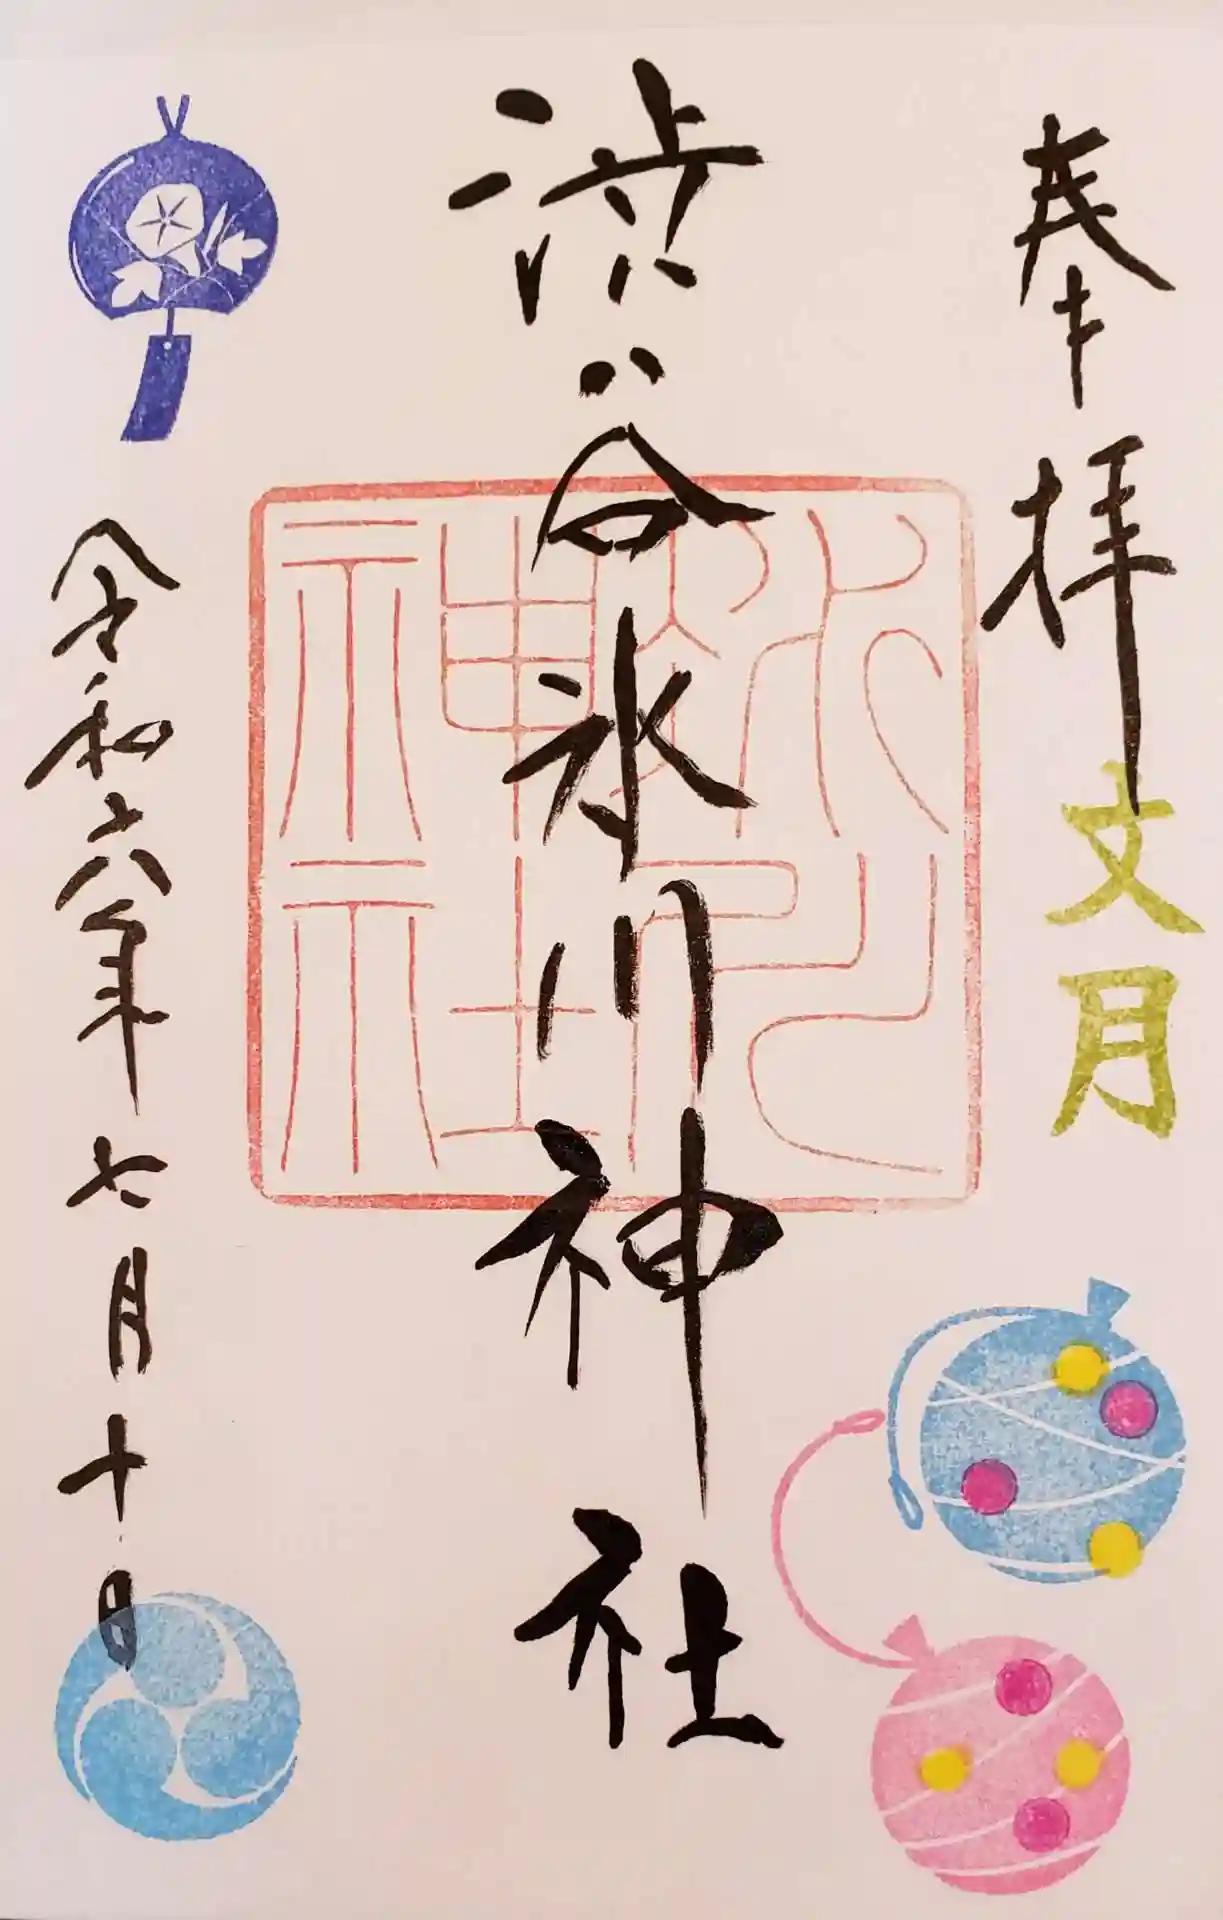 奉拝
文月
渋谷氷川神社
氷川
神社
令和六年七月十日